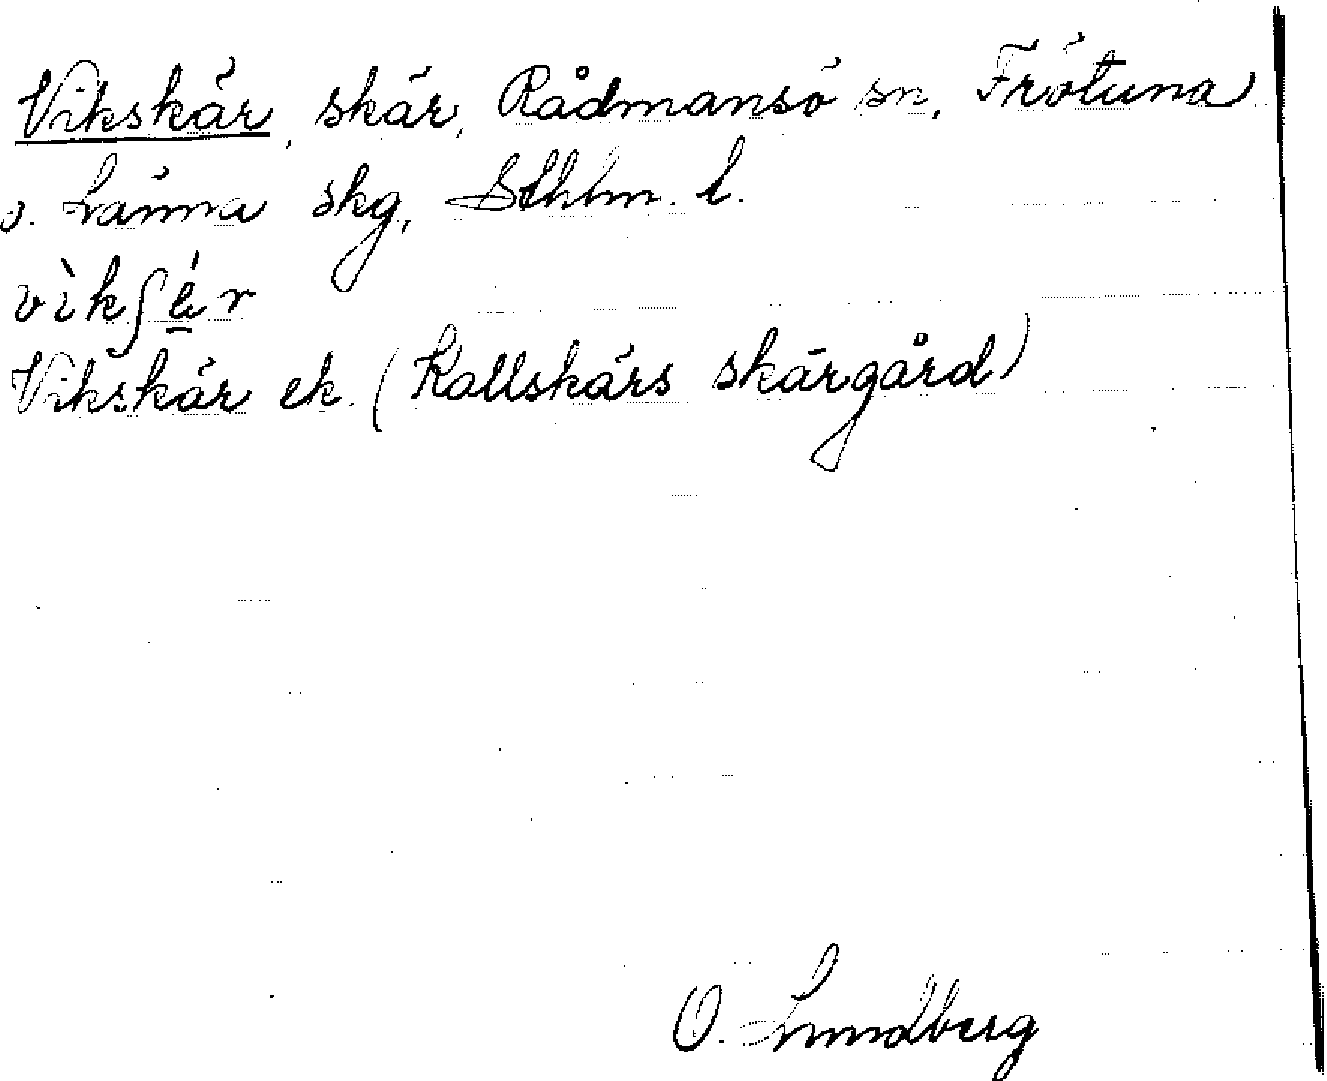 Vikskär, skär, Rådmansö sn, Frötuna
o. Länna skg, Sthlm. l.
vìkʃä́r
Vikskär ek. (Kallskärs skärgård)
O. Lundberg